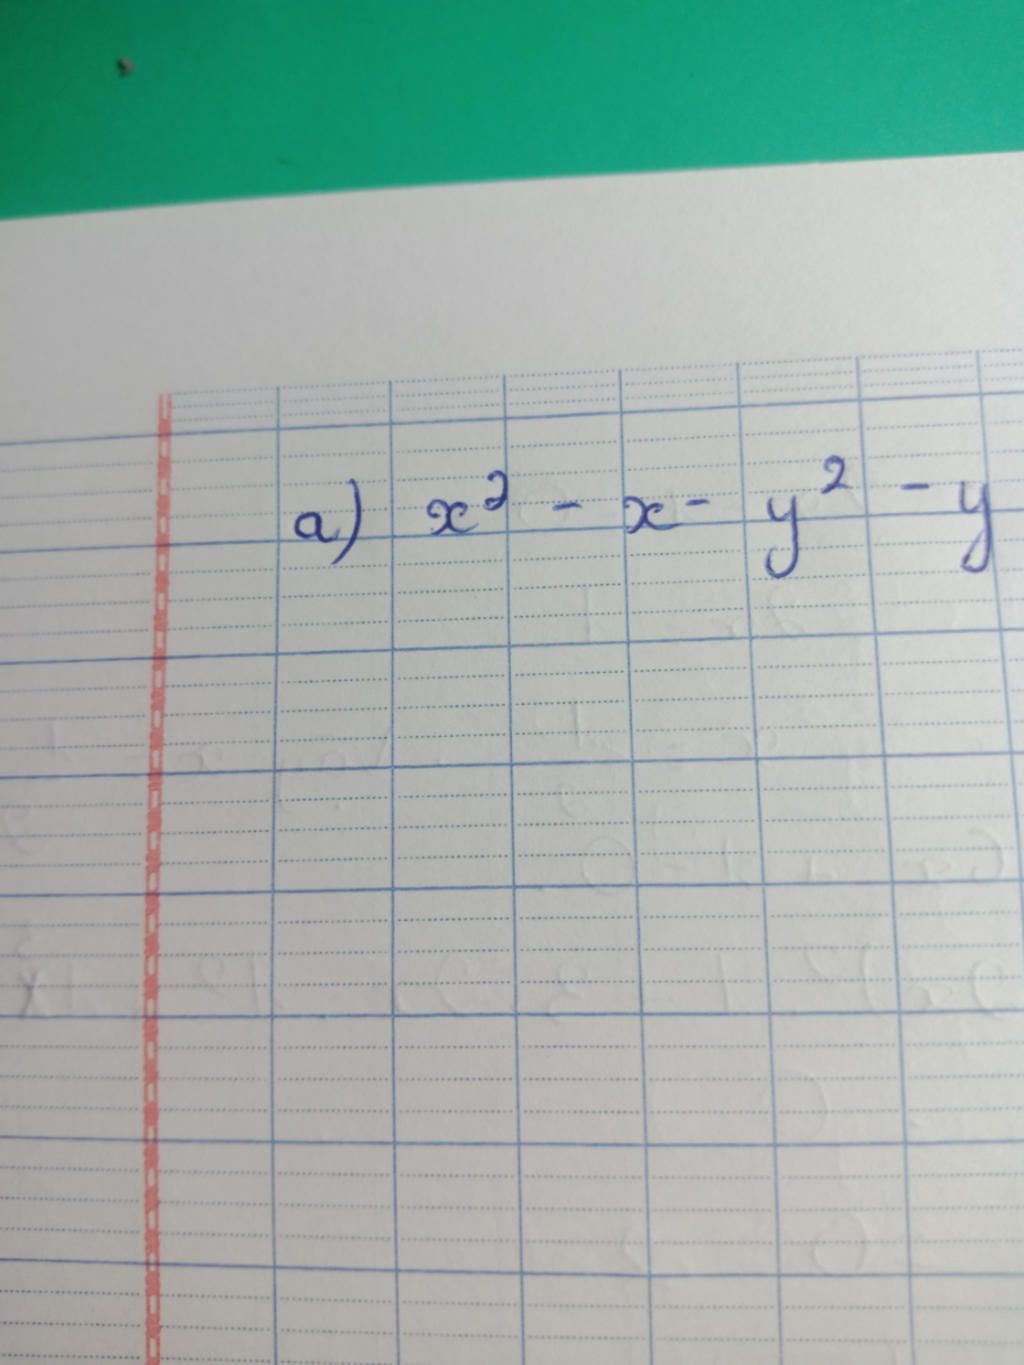 a) x² - x - y² - y